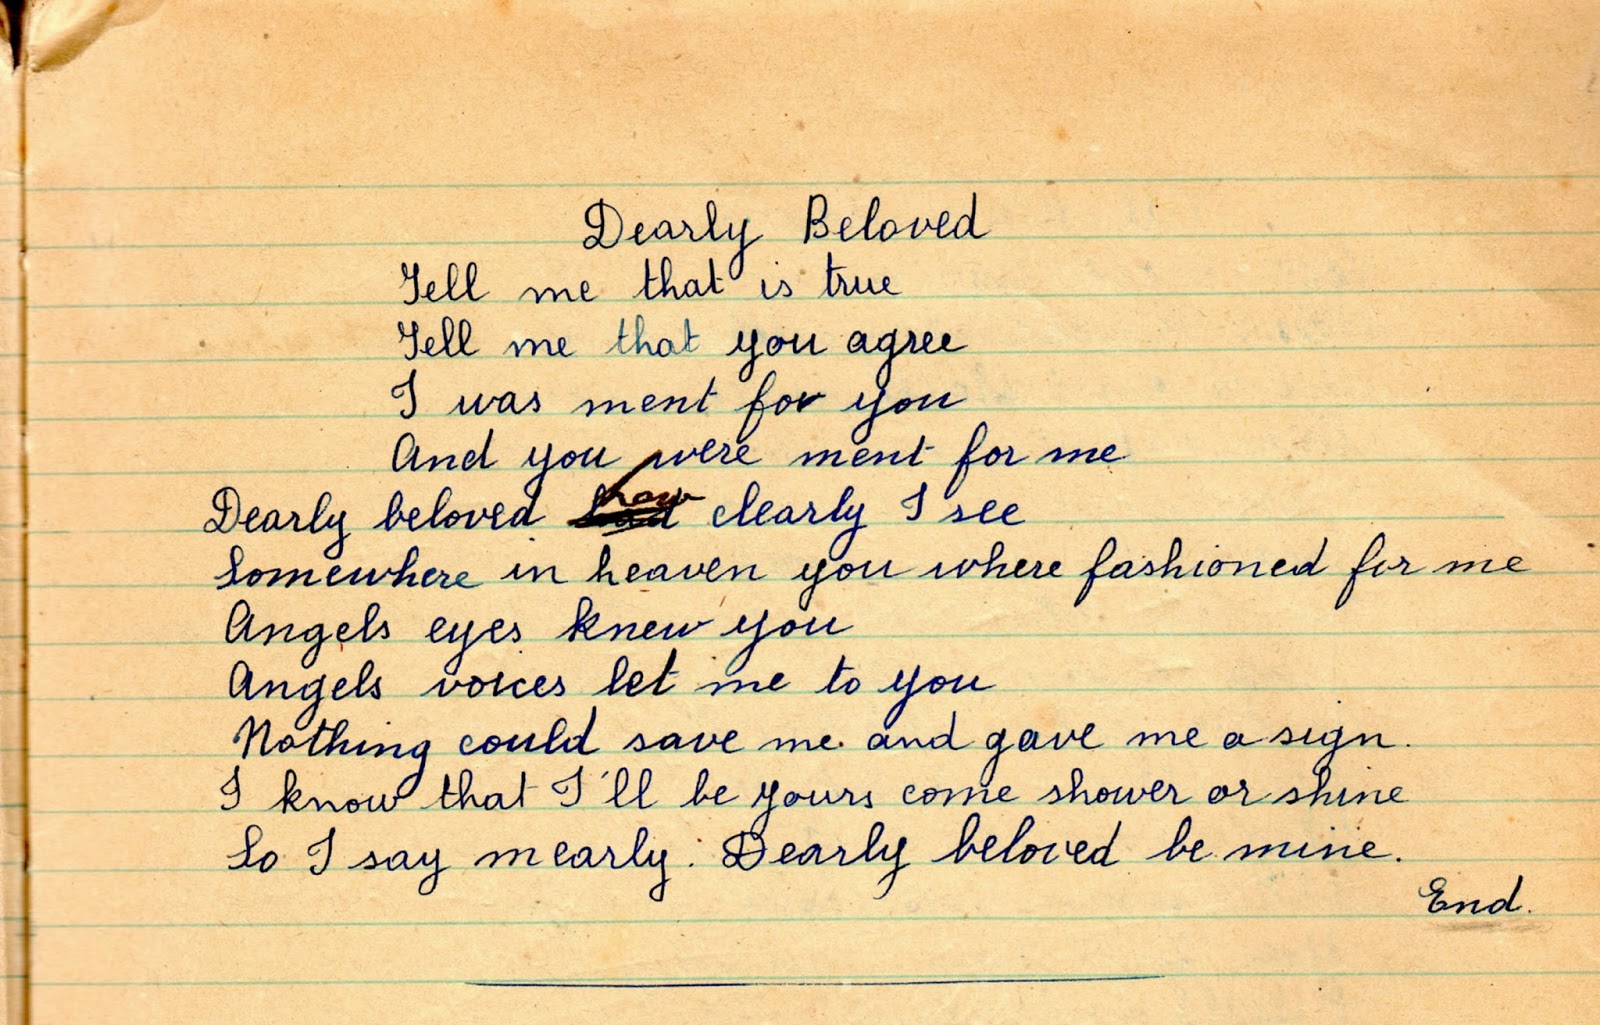 Dearly Beloved
Tell me that is true
Tell me that you agree
I was ment for you
And you were ment for me
Dearly beloved how clearly I see
Somewhere in heaven you where fashioned for me
Angels eyes knew you
Angels voices let me to you
Nothing could save me and gave me a sign.
I know that I'll be yours come shower or shine
So I say mearly. Dearly beloved be mine.
End.